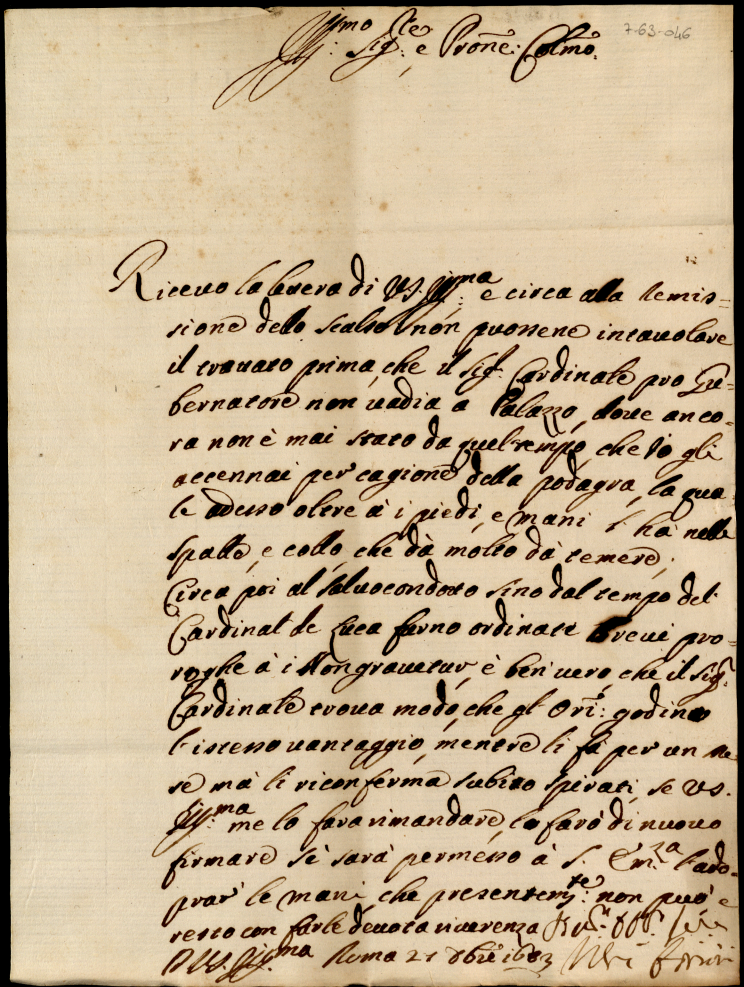 7-63-046
Ill:mo Sig:re e Prone: Colmo.
Riceuo la lettera di VS. Ill:ma e circa alla remis=
sione dello scalso non puossene intauolare
il trattato prima, che il Sig.r Cardinale pro Gu=
bernatore non uadia a Palazzo, doue anco=
ra non è mai stato da quel tempo, che Io gli
accennai per cagione della podagra, la qua=
le adesso oltre à i piedi, e mani l'hà nelle
spalle, e collo, che dà molto dà temere;
Circa poi al saluocondotto sino dal tempo del
Cardinal de Luca furno ordinate breui pro=
roghe à i Non grauetur, è ben uero, che il Sig.r
Cardinale troua modo, che gl'Ori: godino
l'istesso uantaggio, mentre li fà per un me
se mà li riconferma subito spirati, se VS.
Ill:ma me lo farà rimandare, lo farò di nuouo
firmare sè sarà permesso à S. Em.za l'ado=
prar le mani, che presentem:te non può e
resto con farle deuota riuerenza
D VS. Ill:ma Roma 21 Xbre 1683